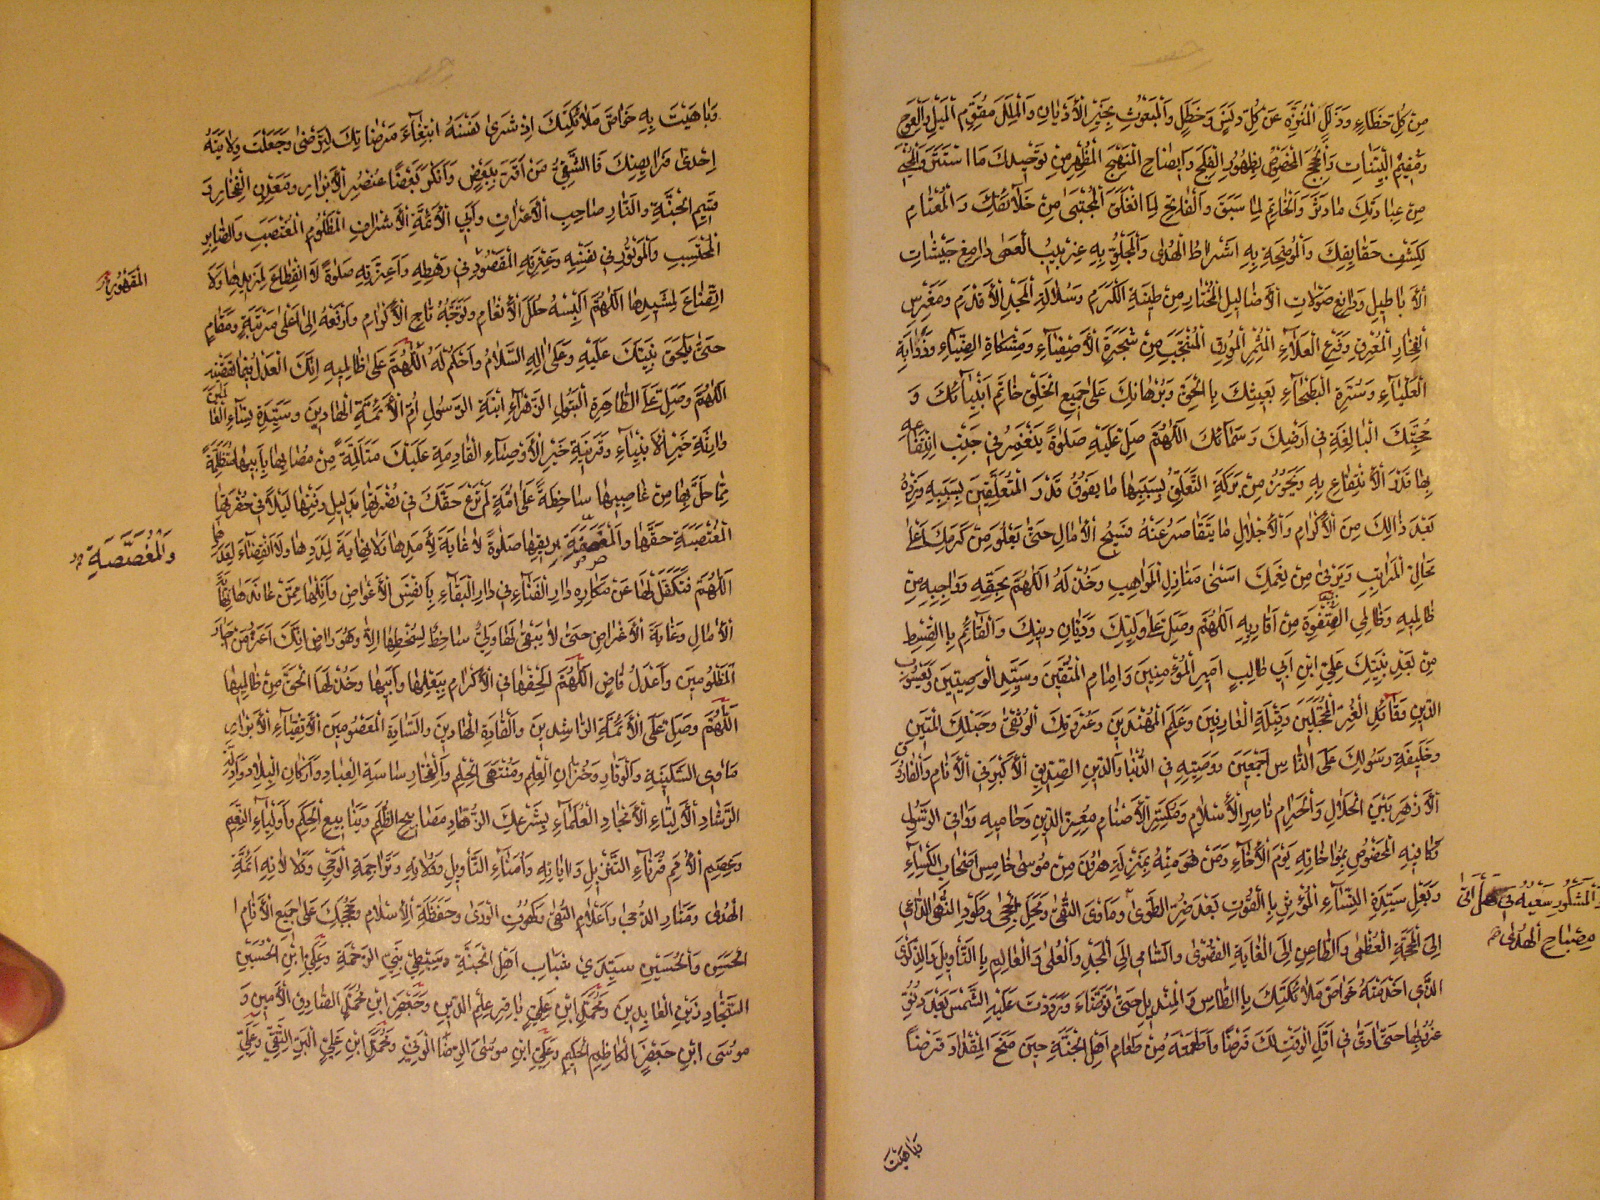 مِنْ كُلِّ خَطَاءٍ وَزَلَلٍ الْمُنَزَّهِ عَنْ كُلِّ دَنَسٍ وَخَطَلٍ وَالْمَبْعُوثِ بِخَيْرِ الْأَدْيَانِ وَالْمِلَلِ مُقَوِّمِ الْمَيْلِ وَالْعِوَجِ
وَمُقِيمِ الْبَيِّنَاتِ وَالْحُجَجِ الْمَخْصُوصِ بِظُهُورِ الْفَلَجِ وَإِيضَاحِ الْمَنْهَجِ الْمُظْهِرِ مِنْ تَوْحِيدِكَ مَا اسْتَتَرَ وَالْمُحْيِي
مِنْ عِبَادَتِكَ مَا دَثَرَ وَالْخَاتِمِ لِمَا سَبَقَ وَالْفَاتِحِ لِمَا انْغَلَقَ الْمُجْتَبَى مِنْ خَلَائِقِكَ وَالْمُعْتَامِ
لِكَشْفِ حَقَائِقِكَ وَالْمُوضَحَةِ بِهِ أَشْرَاطُ الْهُدَى وَالْمَجْلُوِّ بِهِ غِرْبِيبُ الْعَمَى دَامِغِ جَيْشَاتِ
الْأَبَاطِيلِ وَدَافِعِ صَوْلَاتِ الْأَضَالِيلِ الْمُخْتَارِ مِنْ طِينَةِ الْكَرَمِ وَسُلَالَةِ الْمَجْدِ الْأَقْدَمِ وَمَغْرِسِ
الْفَخَارِ الْمُعْرِقِ وَفَرْعِ الْعَلَاءِ الْمُثْمِرِ الْمُورِقِ الْمُنْتَجَبِ مِنْ شَجَرَةِ الْأَصْفِيَاءِ وَمِشْكَاةِ الضِّيَاءِ وَذُؤَابَةِ
الْعَلْيَاءِ وَسُرَّةِ الْبَطْحَاءِ بَعِيثِكَ بِالْحَقِّ وَبُرْهَانِكَ عَلَى جَمِيعِ الْخَلْقِ خَاتَمِ أَنْبِيَائِكَ وَ
حُجَّتِكَ الْبَالِغَةِ فِي أَرْضِكَ وَسَمَائِكَ اللَّهُمَّ صَلِّ عَلَيْهِ صَلَوةً يَنْغَمِرُ فِي جَنْبِ انْتِفَاعِهِ
بِهَا قَدْرُ الْانْتِفَاعِ بِهِ وَيَحُوزُ مِنْ بَرَكَةِ التَّعَلُّقِ بِسَبَبِهَا مَا يَفُوقُ قَدْرَ الْمُتَعَلِّقِينَ بِسَبَبِهِ وَزِدْهُ
بَعْدَ ذَالِكَ مِنَ الْإِكْرَامِ وَالْإِجْلَالِ مَا يَتَقَاصَرُ عَنْهُ فَسِيحُ الْآمَالِ حَتَّى يَعْلُوَ مِنْ كَرَمِكَ أَعْلَى
مَحَالِّ الْمَرَاتِبِ وَيَرْقَى مِنْ نِعَمِكَ أَسْنَى مَنَازِلِ الْمَوَاهِبِ وَخُذْ لَهُ اللَّهُمَّ بِحَقِّهِ وَوَاجِبِهِ مِنْ
ظَالِمِيهِ وَظَالِمِي الصَّفْوَةِ مِنْ أَقَارِبِهِ اللَّهُمَّ وَصَلِّ عَلَى وَلِيِّكَ وَدَيَّانِ دِينِكَ وَالْقَائِمِ بِالْقِسْطِ
مِنْ بَعْدِ نَبِيِّكَ عَلِيِّ ابْنِ أَبِي طَالِبٍ أَمِيرِ الْمُؤْمِنِينَ وَإِمَامِ الْمُتَّقِينَ وَسَيِّدِ الْوَصِيِّينَ وَيَعْسُوبِ
الدِّينِ وَقَائِدِ الْغُرِّ الْمُحَجَّلِينَ وَقِبْلَةِ الْعَارِفِينَ وَعَلَمِ الْمُهْتَدِينَ وَعُرْوَتِكَ الْوُثْقَى وَحَبْلِكَ الْمَتِينِ
وَخَلِيفَةِ رَسُولِكَ عَلَى النَّاسِ أَجْمَعِينَ وَوَصِيِّهِ فِي الدُّنْيَا وَالدِّينِ الصِّدِّيقِ الْأَكْبَرِ فِي الْأَنَامِ وَالْفَارُوقِ
الْأَزْهَرِ بَيْنَ الْحَلَالِ وَالْحَرَامِ نَاصِرِ الْإِسْلَامِ وَمُكَسِّرِ الْأَصْنَامِ مُعِزِّ الدِّينِ وَحَامِيهِ وَوَاقِي الرَّسُولِ
وَكَافِيهِ الْمَخْصُوصِ بِمُوَاخَاتِهِ يَوْمَ الْإِخَاءِ وَمَنْ هُوَ مِنْهُ بِمَنْزِلَةِ هَرُونَ مِنْ مُوسَى خَامِسِ أَصْحَابِ الْكِسَاءِ
وَبَعْلِ سَيِّدَةِ النِّسَاءِ الْمُؤْثِرِ بِالْقُوتِ بَعْدَ ضُرِّ الطَّوَى وَمَأْوَى التُّقَى وَمَحَلِّ الْحِجَى وَطَوْدِ النُّهَى الدَّاعِي
وَالْمَشْكُورِ سَعْيُهُ فِي هَلْ أَتَى
مِصْبَاحِ الْهُدَى
إِلَى الْمَحَجَّةِ الْعُظْمَى وَالظَّاعِنِ إِلَى الْغَايَةِ الْقُصْوَى وَالسَّامِي إِلَى الْمَجْدِ وَالْعُلَى وَالْعَالِمِ بِالتَّأْوِيلِ وَالذِّكْرَى
الَّذِي أَخْدَمْتَهُ خَوَاصَّ مَلَائِكَتِكَ بِالطَّاسِ وَالْمِنْدِيلِ حَتَّى تَوَضَّأَ وَرَدَدْتَ عَلَيْهِ الشَّمْسَ بَعْدَ دُنُوِّ
غُرُوبِهَا حَتَّى أَدَّى فِي أَوَّلِ الْوَقْتِ لَكَ فَرْضًا وَأَطْعَمْتَهُ مِنْ طَعَامِ أَهْلِ الْجَنَّةِ حِينَ مَنَحَ الْمِقْدَادَ قَرْضًا
وَبَاهَيْتَ
وَبَاهَيْتَ بِهِ خَوَاصَّ مَلَائِكَتِكَ إِذْ شَرَى نَفْسَهُ ابْتِغَاءَ مَرْضَاتِكَ لِتَرْضَى وَجَعَلْتَ وِلَايَتَهُ
إِحْدَى فَرَائِضِكَ فَالشَّقِيُّ مَنْ أَقَرَّ بِبَعْضٍ وَأَنْكَرَ بَعْضًا عُنْصُرِ الْأَبْرَارِ وَمَعْدِنِ الْفَخَارِ وَ
قَسِيمِ الْجَنَّةِ وَالنَّارِ صَاحِبِ الْأَعْرَافِ وَأَبِي الْأَئِمَّةِ الْأَشْرَافِ الْمَظْلُومِ الْمُغْتَصَبِ وَالصَّابِرِ
الْمُحْتَسِبِ وَالْمَوْتُورِ فِي نَفْسِهِ وَعِتْرَتِهِ الْمَقْصُودِ فِي رَهْطِهِ وَأَعِزَّتِهِ صَلَوةً لَا انْقِطَاعَ لِمَزِيدِهَا وَلَا
الْمَقْهُورِ
اتِّضَاعَ لِمَشِيدِهَا اللَّهُمَّ أَلْبِسْهُ حُلَلَ الْإِنْعَامِ وَتَوِّجْهُ تَاجَ الْإِكْرَامِ وَارْفَعْهُ إِلَى أَعْلَى مَرْتَبَةٍ وَمَقَامٍ
حَتَّى يَلْحَقَ نَبِيَّكَ عَلَيْهِ وَعَلَى آلِهِ السَّلَامُ وَاحْكُمْ لَهُ اللَّهُمَّ عَلَى ظَالِمِيهِ إِنَّكَ الْعَدْلُ فِيمَا تَقْضِيهِ
اللَّهُمَّ وَصَلِّ عَلَى الطَّاهِرَةِ الْبَتُولِ الزَّهْرَاءِ ابْنَةِ الرَّسُولِ أُمِّ الْأَئِمَّةِ الْهَادِينَ وَسَيِّدَةِ نِسَاءِ الْعَالَمِينَ
وَارِثَةِ خَيْرِ الْأَنْبِيَاءِ وَقَرِينَةِ خَيْرِ الْأَوْصِيَاءِ الْقَادِمَةِ عَلَيْكَ مُتَأَلِّمَةً مِنْ مُصَابِهَا بِأَبِيهَا مُتَظَلِّمَةً
مِمَّا حَلَّ بِهَا مِنْ غَاصِبِيهَا سَاخِطَةً عَلَى أُمَّةٍ لَمْ تَرْعَ حَقَّكَ فِي نُصْرَتِهَا بِدَلِيلِ دَفْنِهَا لَيْلًا فِي حُفْرَتِهَا
الْمُغْتَصَبَةِ حَقَّهَا وَالْمُغَصَّصَةِ بِرِيقِهَا صَلَوةً لَا غَايَةَ لِأَمَدِهَا وَلَا نِهَايَةَ لِمَدَدِهَا وَلَا انْقِضَاءَ لِعَدَدِهَا
وَالْمُغَصَّصَةِ
اللَّهُمَّ فَتَكَفَّلْ لَهَا عَنْ مَكَارِهِ دَارِ الْفَنَاءِ فِي دَارِ الْبَقَاءِ بِأَنْفَسِ الْأَعْوَاضِ وَأَنِلْهَا مِمَّنْ عَانَدَهَا نِهَايَةَ
الْآمَالِ وَغَايَةَ الْأَغْرَاضِ حَتَّى لَا يَبْقَى لَهَا وَلِيٌّ سَاخِطٌ لِسَخَطِهَا إِلَّا وَهُوَ رَاضٍ إِنَّكَ أَعَزُّ مَنْ أَجَارَ
الْمَظْلُومِينَ وَأَعْدَلُ قَاضٍ اللَّهُمَّ أَلْحِقْهَا فِي الْإِكْرَامِ بِبَعْلِهَا وَأَبِيهَا وَخُذْ لَهَا الْحَقَّ مِنْ ظَالِمِيهَا
اللَّهُمَّ وَصَلِّ عَلَى الْأَئِمَّةِ الرَّاشِدِينَ وَالْقَادَةِ الْهَادِينَ وَالسَّادَةِ الْمَعْصُومِينَ الْأَتْقِيَاءِ الْأَبْرَارِ
مَأْوَى السَّكِينَةِ وَالْوَقَارِ وَخُزَّانِ الْعِلْمِ وَمُنْتَهَى الْحِلْمِ وَالْفَخَارِ سَاسَةِ الْعِبَادِ وَأَرْكَانِ الْبِلَادِ وَأَدِلَّةِ
الرَّشَادِ الْأَلِبَّاءِ الْأَمْجَادِ الْعُلَمَاءِ بِشَرْعِكَ الزُّهَّادِ مَصَابِيحِ الظُّلَمِ وَيَنَابِيعِ الْحِكَمِ وَأَوْلِيَاءِ النِّعَمِ
وَعِصَمِ الْأُمَمِ قُرَنَاءِ التَّنْزِيلِ وَآيَاتِهِ وَأُمَنَاءِ التَّأْوِيلِ وَوُلَاتِهِ وَتَرَاجِمَةِ الْوَحْيِ وَدَلَالَاتِهِ أَئِمَّةِ
الْهُدَى وَمَنَارِ الدُّجَى وَأَعْلَامِ التُّقَى وَكُهُوفِ الْوَرَى وَحَفَظَةِ الْإِسْلَامِ وَحُجَجِكَ عَلَى جَمِيعِ الْأَنَامِ
الْحَسَنِ وَالْحُسَيْنِ سَيِّدَيْ شَبَابِ أَهْلِ الْجَنَّةِ وَسِبْطَيْ نَبِيِّ الرَّحْمَةِ وَعَلِيِّ ابْنِ الْحُسَيْنِ
السَّجَّادِ زَيْنِ الْعَابِدِينَ وَمُحَمَّدِ ابْنِ عَلِيٍّ بَاقِرِ عِلْمِ الدِّينِ وَجَعْفَرِ ابْنِ مُحَمَّدٍ الصَّادِقِ الْأَمِينِ وَ
مُوسَى ابْنِ جَعْفَرٍ الْكَاظِمِ الْحَكِيمِ وَعَلِيِّ ابْنِ مُوسَى الرِّضَا الْوَفِيِّ وَمُحَمَّدِ ابْنِ عَلِيٍّ الْبَرِّ التَّقِيِّ وَعَلِيِّ